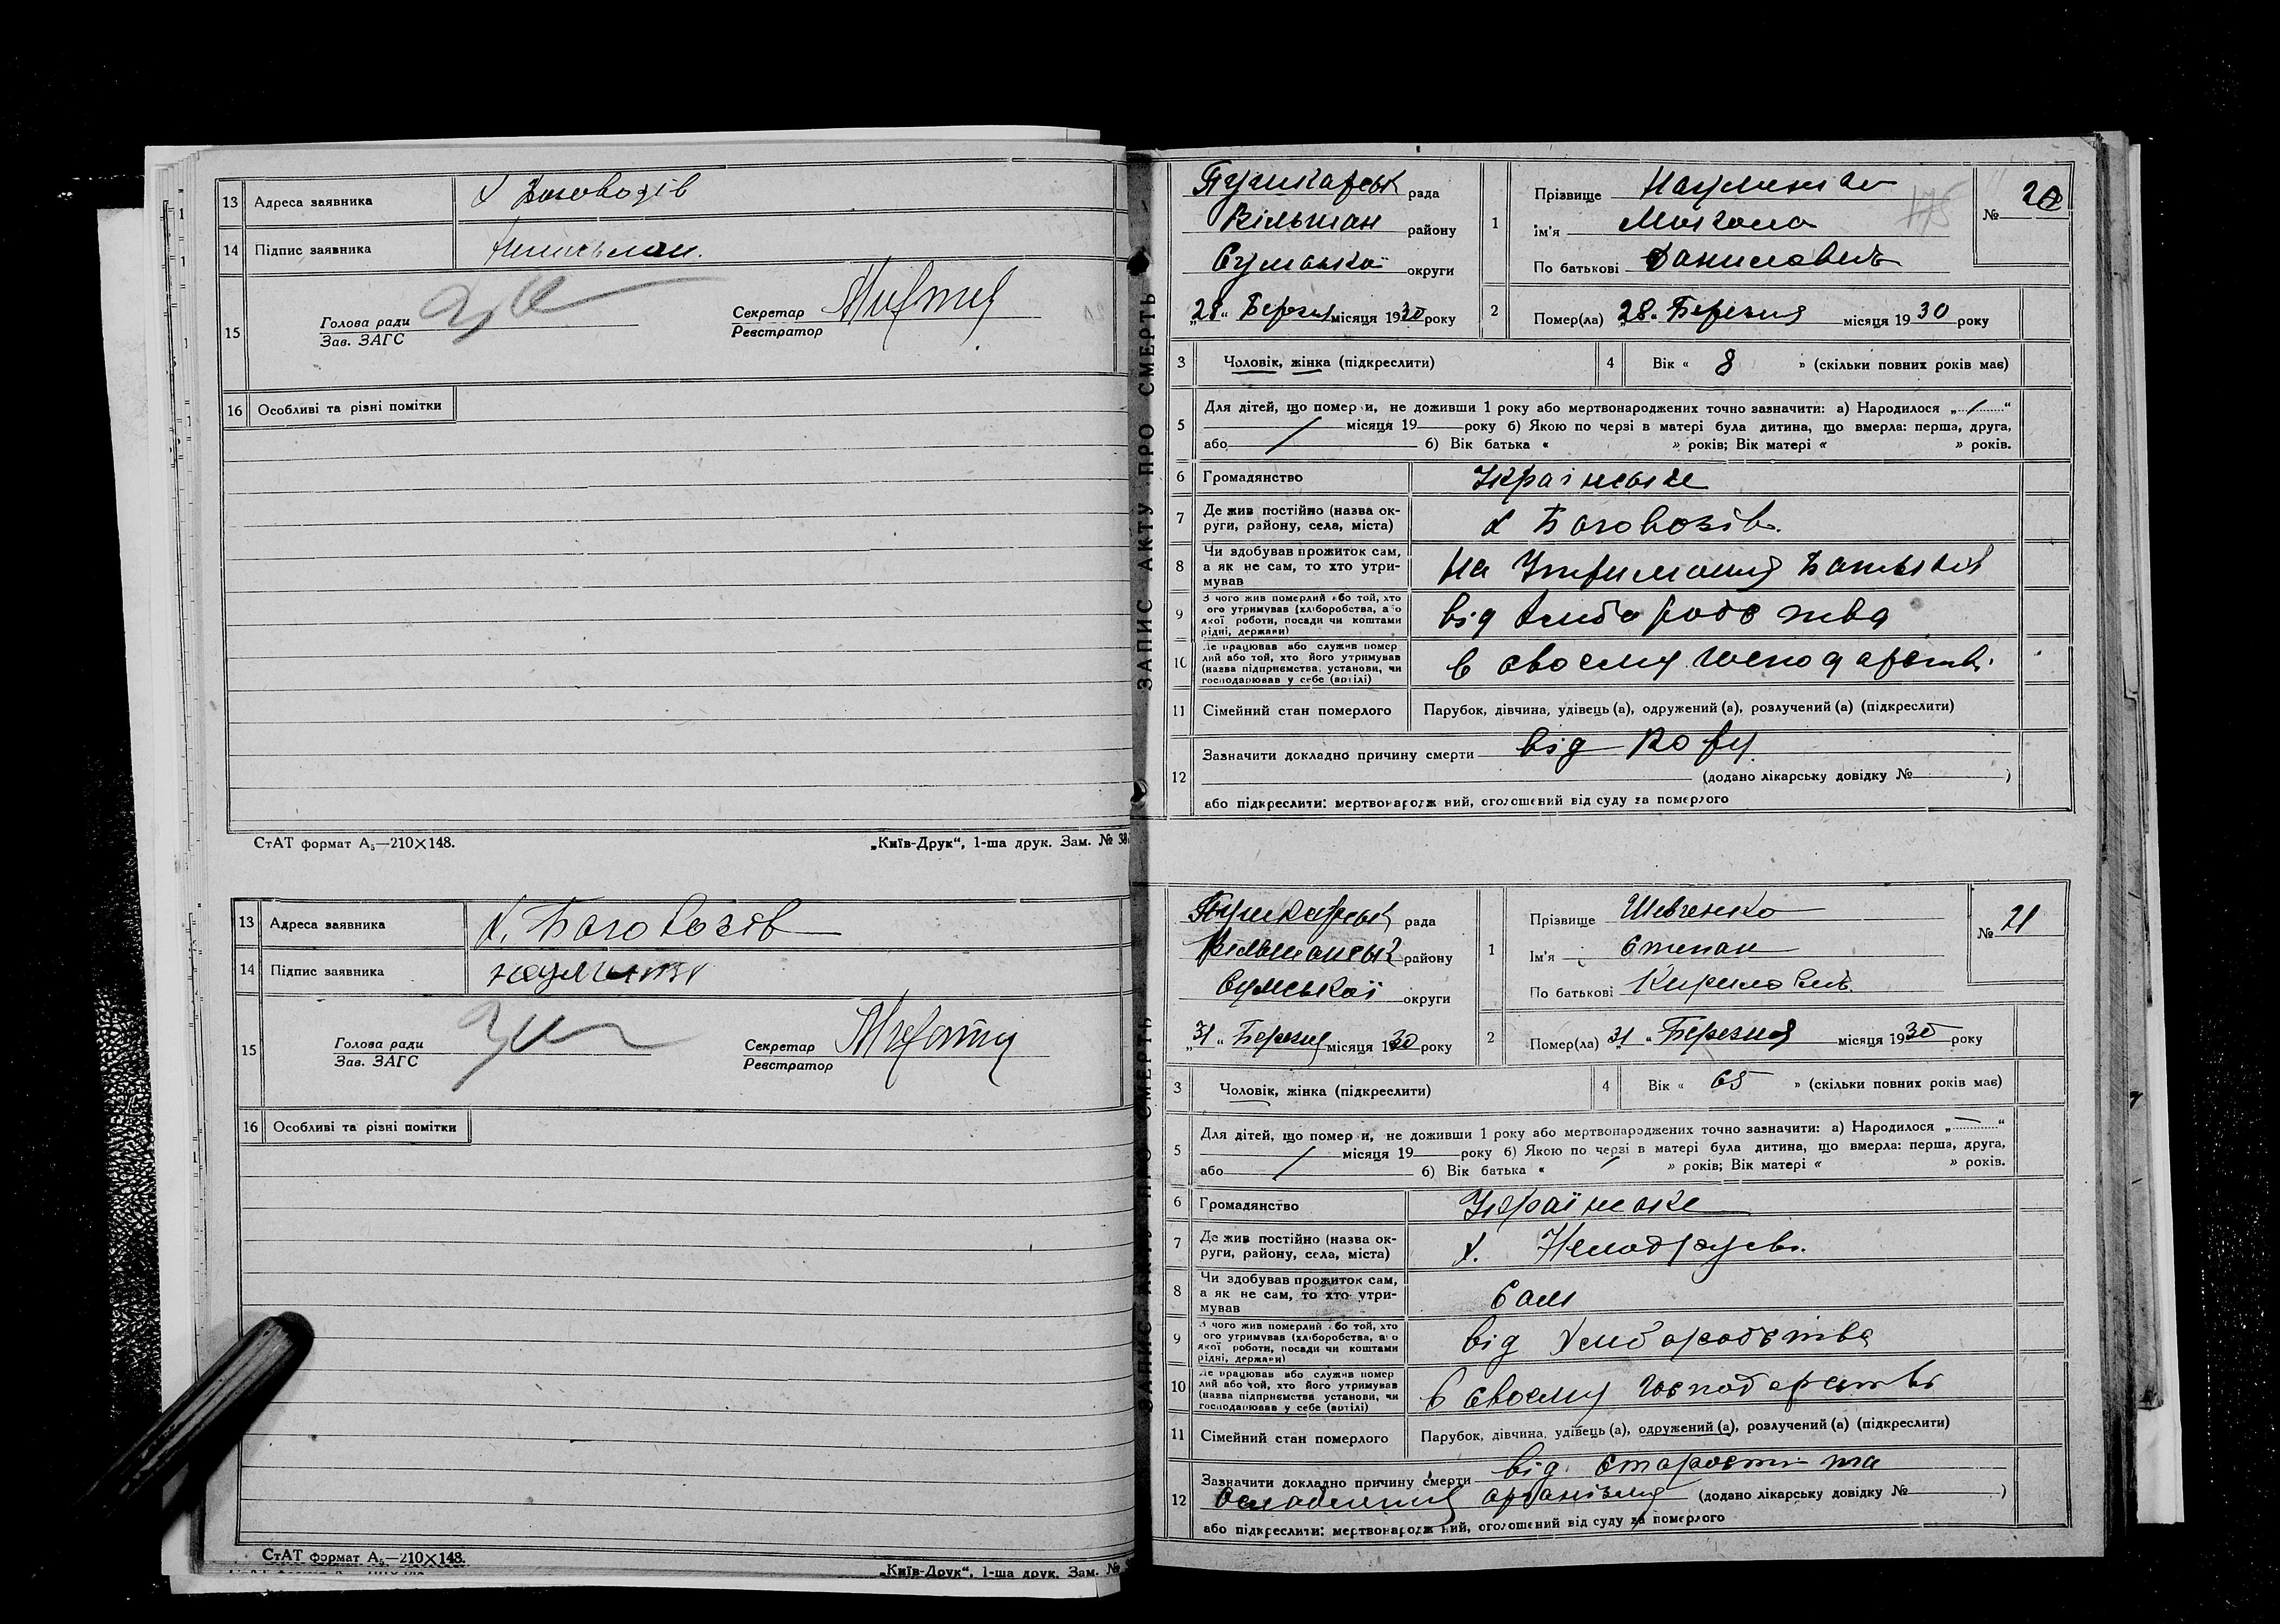 13 Адреса заявника х
14 Підпис заявника
15 Голова ради
Зав. ЗАГС
Секретар
Реєстратор
16 Особливі та різні помітки
СтАТ формат А₅—210×148.
„Київ-Друк“, 1-ша друк. Зам. № 38
13 Адреса заявника х. Боговозів
14 Підпис заявника
15 Голова ради
Зав. ЗАГС
Секретар
Реєстратор
16 Особливі та різні помітки
СтАТ формат А₅—210×148.
„Київ-Друк“, 1-ша друк. Зам. №
ЗАПИС АКТУ ПРО СМЕРТЬ
Пушкарськ рада
Вільшан району
Сумської округи
„28“ Березня місяця 1930 року
1 Прізвище Науменко
ім'я
По батькові Данилович
№ 20
175
2 Помер(ла) „28“ Березня місяця 1930 року
3 Чоловік, жінка (підкреслити)
4 Вік « 8 » (скільки повних років має)
5 Для дітей, що померли, не доживши 1 року або мертвонароджених точно зазначити: а) Народилося „ “
місяця 19 року б) Якою по черзі в матері була дитина, що вмерла: перша, друга,
або б) Вік батька « » років; Вік матері « » років.
6 Громадянство Українське
7 Де жив постійно (назва ок-
руги, району, села, міста) х Боговозів.
8 Чи здобував прожиток сам,
а як не сам, то хто утри-
мував На Утримання Батьків
9 З чого жив померлий або той, хто
ого утримував (хліборобства, або
якої роботи, посади чи коштами
рідні, держави) від хліборобства
10 Де працював або служив помер
лий або той, хто його утримував
(назва підприємства, установи, чи
господарював у себе (артілі) в своєму господарстві.
11 Сімейний стан померлого Парубок, дівчина, удівець (а), одружений (а), розлучений (а) (підкреслити)
12 Зазначити докладно причину смерти від Кору
(додано лікарську довідку № )
або підкреслити: мертвонародж ний, оголошений від суду за померлого
Пушкарськ рада
Вільшанськ району
Сумської округи
„31“ Березня місяця 1930 року
1 Прізвище Шевченко
Ім'я Степан
По батькові Кирилович
№ 21
2 Помер(ла) „31“ Березня місяця 1930 року
3 Чоловік, жінка (підкреслити)
4 Вік « 65 » (скільки повних років має)
5 Для дітей, що померли, не доживши 1 року або мертвонароджених точно зазначити: а) Народилося „ “
місяця 19 року б) Якою по черзі в матері була дитина, що вмерла: перша, друга,
або б) Вік батька « » років; Вік матері « » років.
6 Громадянство Українське
7 Де жив постійно (назва ок-
руги, району, села, міста) х.
8 Чи здобував прожиток сам,
а як не сам, то хто утри-
мував Сам
9 З чого жив померлий або той, хто
ого утримував (хліборобства, або
якої роботи, посади чи коштами
рідні, держави) від хліборобства
10 Де працював або служив помер
лий або той, хто його утримував
(назва підприємства установи, чи
господарював у себе (артілі) в своєму господарстві
11 Сімейний стан померлого Парубок, дівчина, удівець (а), одружений (а), розлучений (а) (підкреслити)
12 Зазначити докладно причину смерти від старости та
Ослаблення організму (додано лікарську довідку № )
або підкреслити: мертвонародж ний, оголошений від суду за померлого